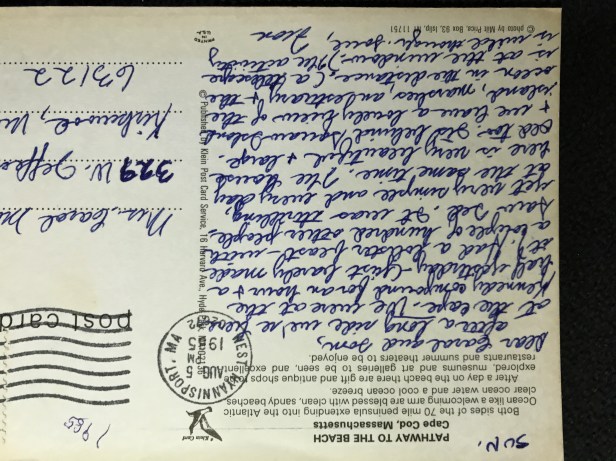 SUN.
1985
PATHWAY TO THE BEACH
Cape Cod, Massachusetts
Both sides of the 70 mile peninsula extending into the Atlantic
Ocean like a welcoming arm are blessed with clean, sandy beaches,
clear ocean water and a cool ocean breeze.
After a day on the beach there are gift and antique shops to be
explored, museums and art galleries to be seen, and excellent
restaurants and summer theaters to be enjoyed.
Klein Card
WEST HYANNISPORT, MA
AUG 5
PM
1985
post card
Dear Carol and sons,
after a long ride we're here
at the Cape. We were at the
Kennedy compound for an hour + a
half yesterday (just barely made
it). Had a lobster feast - with
a couple of hundred other people.
Saw Ted. It was thrilling
yet very simple and every day
at the same time. The house
here is very beautiful + large.
behind Island
+ we have a lovely view of the
island, marshes, an estuary + the
ocean in the distance. (a telescope
is at the window). The activity
is mild though. Love,
Mrs. Carol
329 W. Jeffe
Kirkwood, Mo
63122
© Published by Klein Post Card Service, 16 Harvard Ave., Hyde
PRINTED IN U.S.A.
© photo by Milt Price, Box 93, Islip, NY 11751